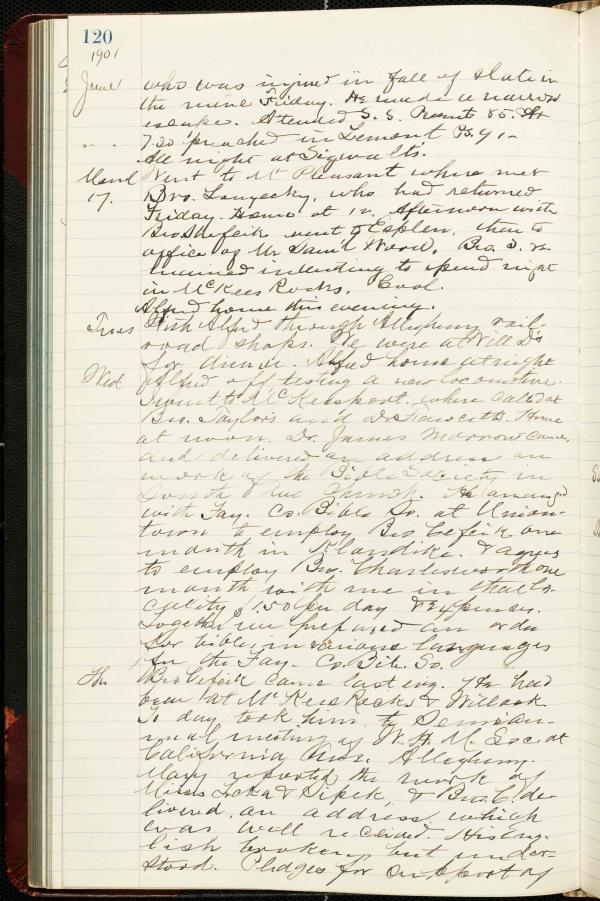 120
1901
June who was injured in fall of slate in
the mine Friday. He made a narrow
escape. Attended S. S. Present 85. At
7.30 preached in Lemont, Ps. 91.
All night at Sigwalt's.
17. Went to Mt Pleasant where met
Bro. , who had returned
Friday. Home at 12. Afternoon with
Bro went to Esplen, then to
office of Mr Sam'l Wood. Bro. re-
mained intending to spend night
in McKees Rocks. Cool.
Alfred home this evening.
Tues With Alfred through Allegheny rail-
road shops. We were at Will D's
for dinner. Alfred home at night
Wed filled off testing a new locomotive.
I went to McKeesport where called at
Bro. Taylor's and Dr Fawcett's. Home
at noon. Dr. James Morrow came,
and delivered an address on
work of the Bible Society in
South Ave Church. He arranged
with Fay. Co. Bible So. at Union-
town to employ Bro. one
month in Klondike. & agrees
to employ Bro. Charlesworth one
month with me in that lo-
cality @ 1.50 per day & expenses.
Together we prepared an order
for bibles in various languages
for the Fay. Co. Bib. So.
Th. Bro came last eve. He had
been at McKees Rocks & Willock.
To day took him to Semi an-
nual meeting of W. H. M. Soc. at
California Ave. Allegheny.
Mary reported the work of
Misses & , & Bro. C. de-
livered an address which
was well received. His Eng-
lish broken but under-
stood. Pledges for support of